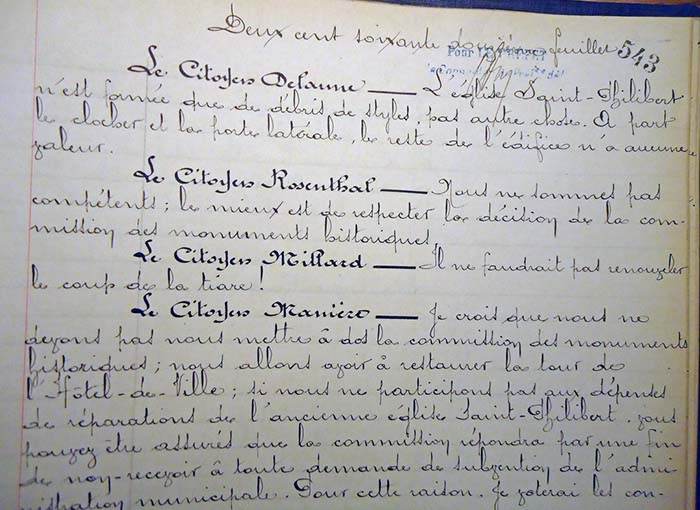 Deux cent soixante douzième feuillet
543
Pour
Le Citoyen Delaune — L'église Saint-Philibert
n'est formée que de débris de styles, pas autre chose. A part
le clocher et la porte latérale, le reste de l'édifice n'a aucune
valeur.
Le Citoyen Rosenthal — Nous ne sommes pas
compétents; le mieux est de respecter la décision de la com-
mission des monuments historiques.
Le Citoyen Millard — Il ne faudrait pas renouveler
le coup de la tiare!
Le Citoyen Manière — Je crois que nous ne
devons pas nous mettre à dos la commission des monuments
historiques; nous allons avoir à restaurer la tour de
l'Hôtel-de-Ville; si nous ne participons pas aux dépenses
de réparations de l'ancienne église Saint-Philibert, vous
pouvez être assurés que la commission répondra par une fin
de non-recevoir à toute demande de subvention de l'admi
nistration municipale. Pour cette raison, je voterai les con-